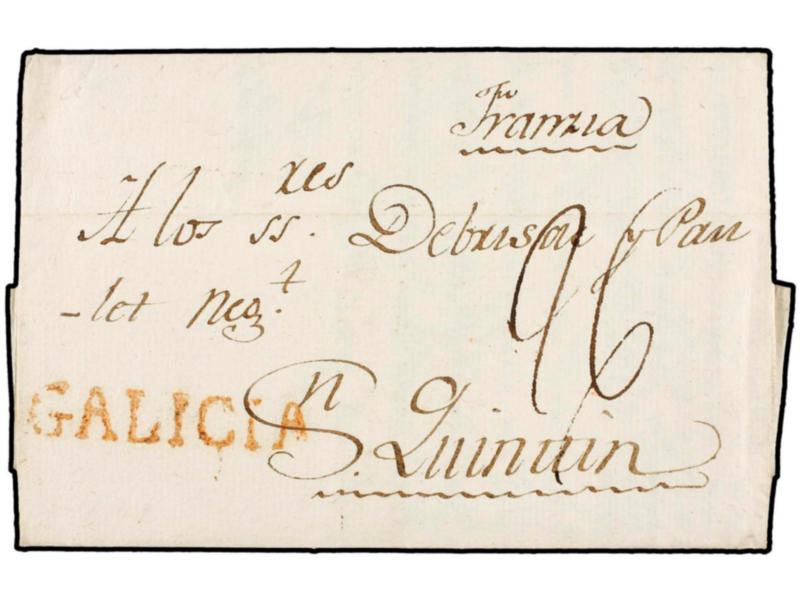 Franzia
A los ss.res Debrisae y Pau
-let Neg.t
GALICIA
S.n Quintin